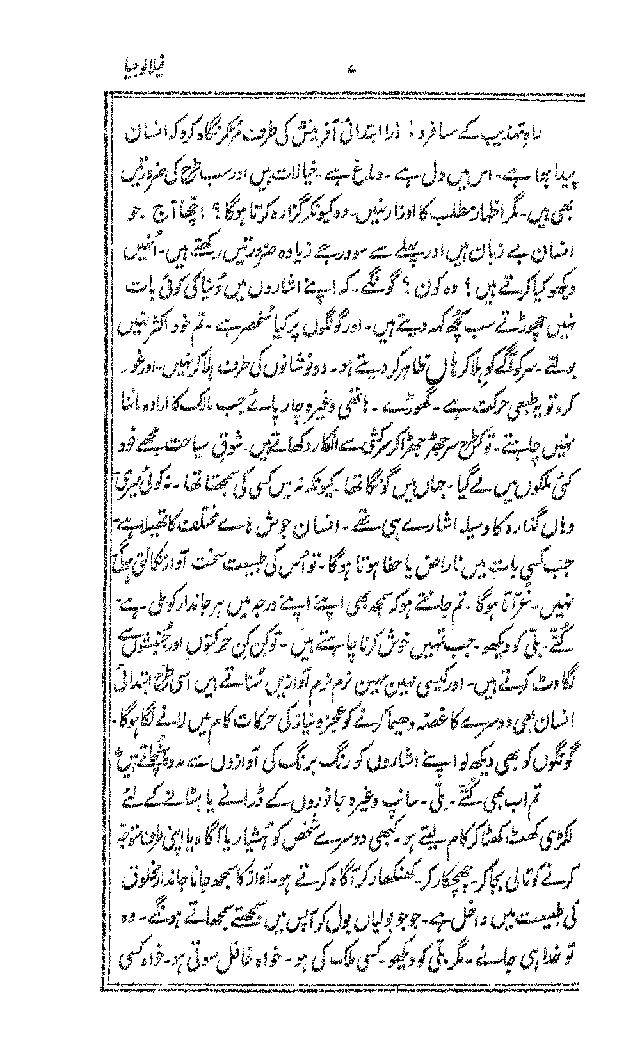 ۷
راہِ تہذیب کے مسافرو! ذرا ابتدائی آفرینش کی طرف مڑ کر نگاہ کرو کہ انسان
پیدا ہوا ہے۔ اس میں دل ہے۔ دماغ ہے۔ خیالات ہیں اور سب طرح کی ضرورتیں
بھی ہیں۔ مگر اظہارِ مطلب کا اوزار نہیں۔ وہ کیونکر گزارہ کرتا ہوگا؟ اچھا آج جو
انسان بے زبان ہیں اور پہلے سے سو درجے زیادہ ضرورتیں رکھتے ہیں۔ اُنہیں
دیکھو کیا کرتے ہیں؟ وہ کون؟ گونگے۔ کہ اپنے اشاروں میں دُنیا کی کوئی بات
نہیں چھوڑتے سب کچھ کہہ دیتے ہیں۔ اور گونگوں پر کیا منحصر ہے۔ تم خود اکثر نہیں
بولتے۔ سر کو آگے کو ہلا کر ہاں ظاہر کر دیتے ہو۔ دونو شانوں کی طرف ہلا کر نہیں۔ اور غور۔
کرو تو یہ طبعی حرکت ہے۔ گھوڑے۔ ہاتھی وغیرہ چارپائے جب مالک کا ارادہ ماننا
نہیں چاہتے۔ تو کس طرح سر جھڑجھڑا کر سرکشی سے انکار دکھاتے ہیں۔ شوقِ سیاحت مجھے خود
کئی ملکوں میں لے گیا۔ جہاں میں گونگا تھا۔ کیونکہ نہ میں کسی کی سمجھتا تھا۔ نہ کوئی میری
وہاں گذارہ کا وسیلہ اشارے ہی تھے۔ انسان جوش ہائے مختلف کا تھیلا ہے۔
جب کسی بات میں ناراض یا خفا ہوتا ہوگا۔ تو اُس کی طبیعت سخت آواز نکالتی ہوگی
نہیں۔ غرّاتا ہوگا۔ تم جانتے ہو کہ سمجھ بھی اپنے اپنے درجہ میں ہر جاندار کو ملی ہے۔
کُتّے۔ بلّی کو دیکھو۔ جب تمہیں خوش کرنا چاہتے ہیں۔ تو کن کن حرکتوں اور جنبشوں سے
لگاوٹ کرتے ہیں۔ اور کیسی مہین مہین نرم نرم آوازیں سُناتے ہیں اسی طرح ابتدائی
انسان بھی دوسرے کا غصہ دھیما کرنے کو عجز و نیاز کی حرکات کام میں لانے لگا ہوگا۔
گونگوں کو بھی دیکھ لو اپنے اشاروں کو رنگ برنگ کی آوازوں سے مدد پہنچاتے ہیں
تم اب بھی کُتّے۔ بلّی۔ سانپ وغیرہ جانوروں کے ڈرانے یا ہٹانے کے لئے
لکڑی کھٹ کھٹا کر کام لیتے ہو۔ کبھی دوسرے شخص کو ہشیار یا آگاہ یا اپنی طرف متوجہ
کرنے کو تالی بجا کر۔ چھچکار کر۔ کھنکھار کر آگاہ کرتے ہو۔ آواز کا سمجھ جانا جاندار مخلوق
کی طبیعت میں داخل ہے۔ جو جو بولیاں بول کر آپس میں سمجھتے سمجھاتے ہونگے۔ وہ
تو خدا ہی جانے۔ مگر بلّی کو دیکھو۔ کسی ملک کی ہو۔ خواہ غافل سوتی ہو۔ خواہ کسی